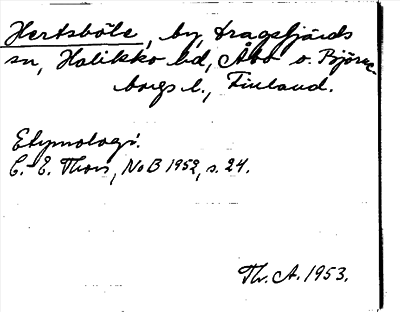 Hertsböle, by, Dragsfjärds
sn, Halikko hd, Åbo o. Björne-
borgs l., Finland.
Etymologi.
C.-E. Thors, NoB 1952, s. 24.
Th. A. 1953.